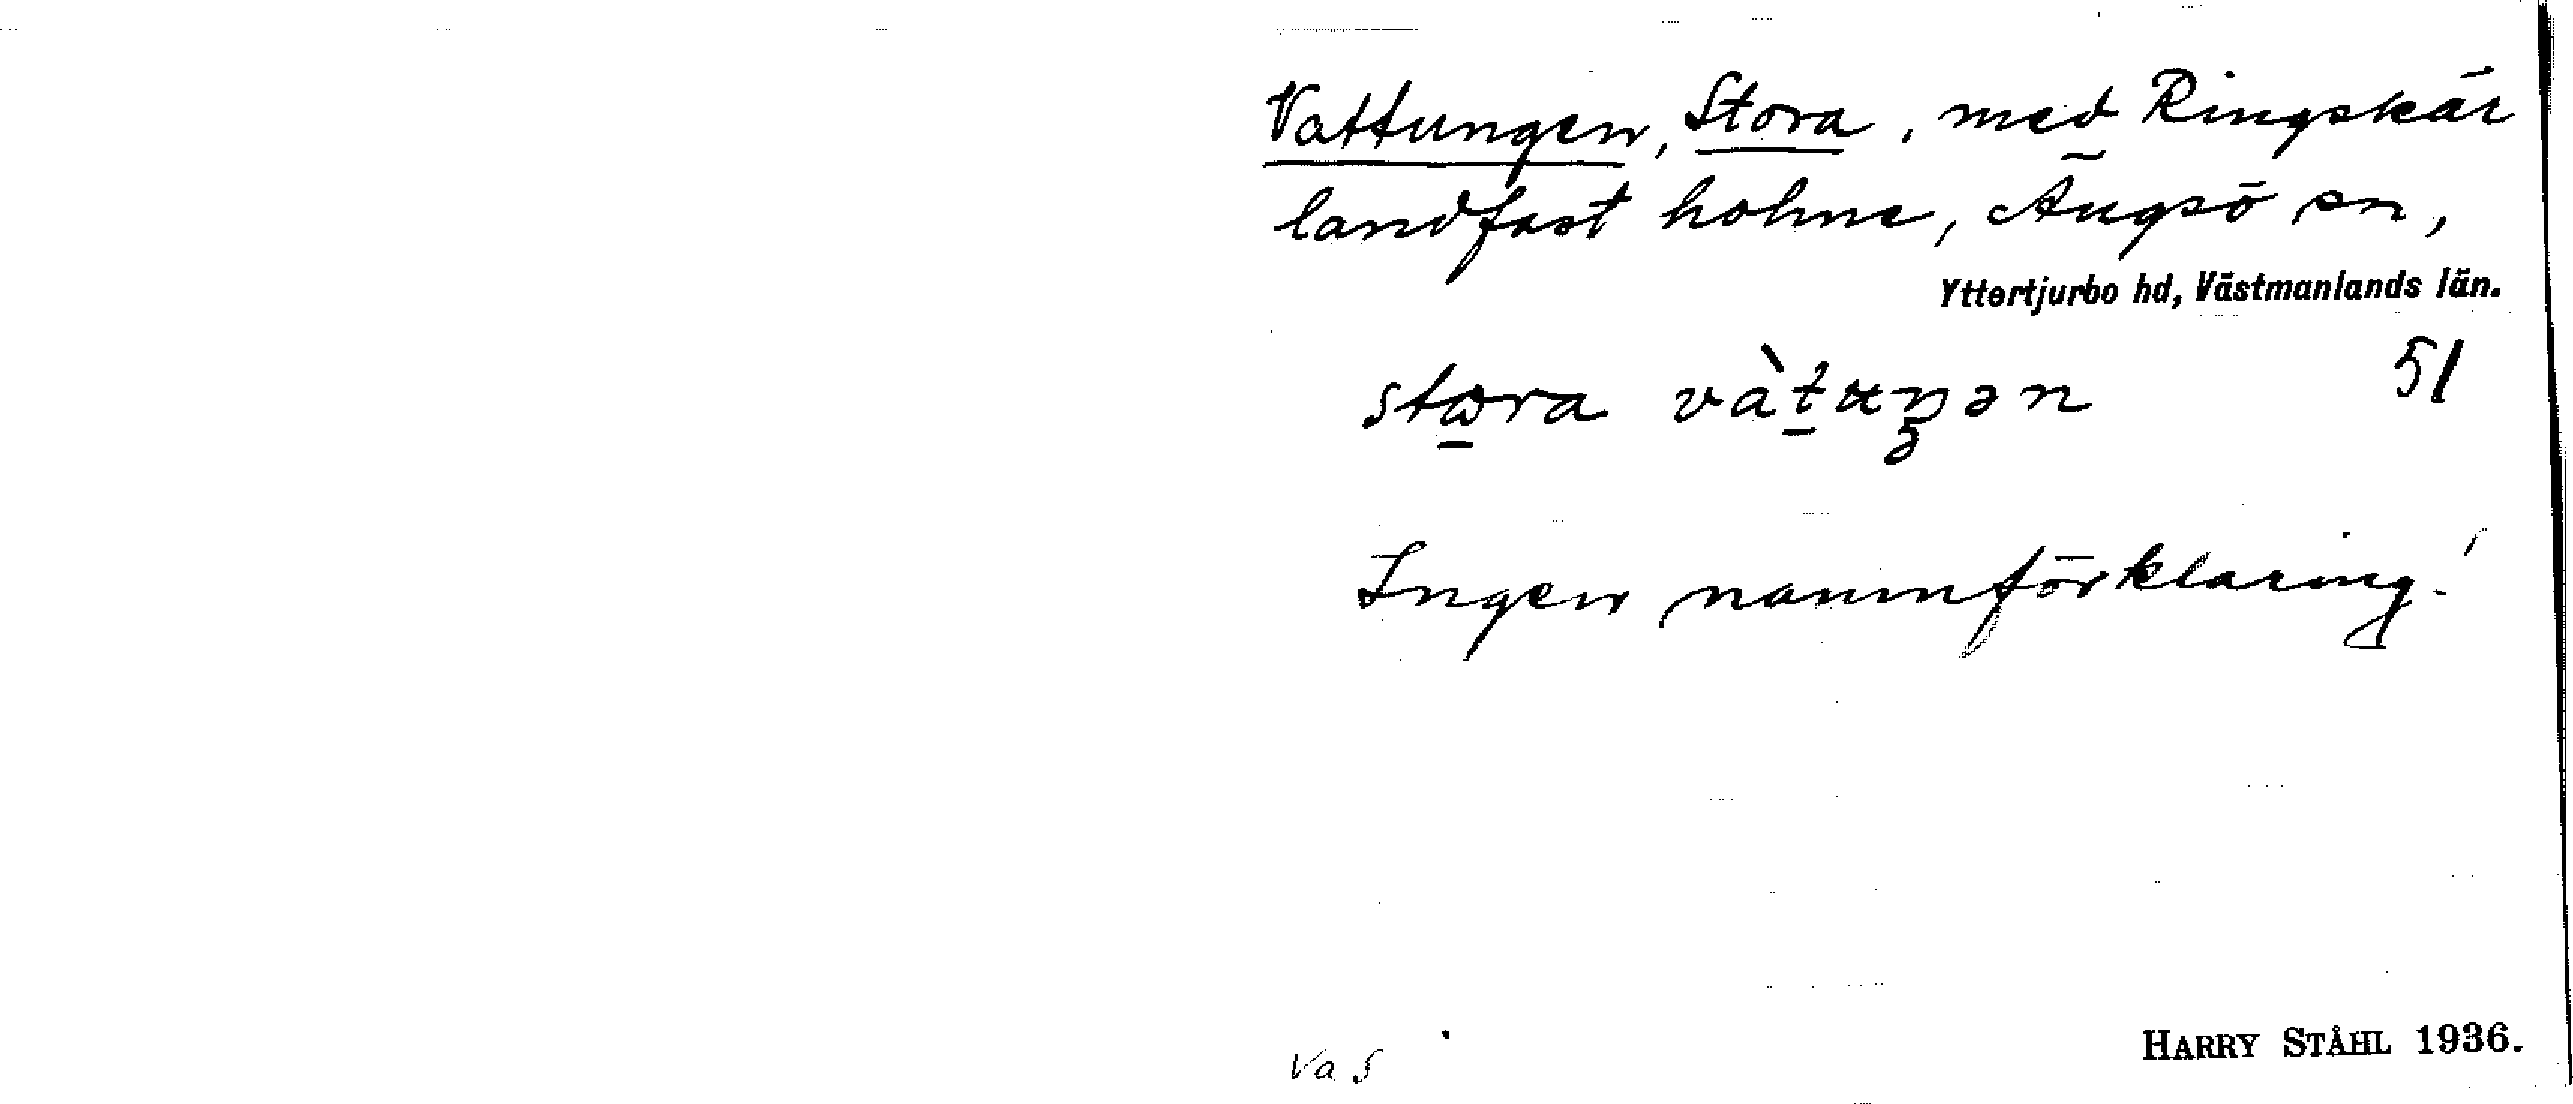 Vattungen, Stora, med Ringskär
landfast holme, Ängsö sn,
Yttertjurbo hd, Västmanlands län.
51
stɷra vàtuŋən
Ingen namnförklaring!
Va S
HARRY STÅHL 1936.